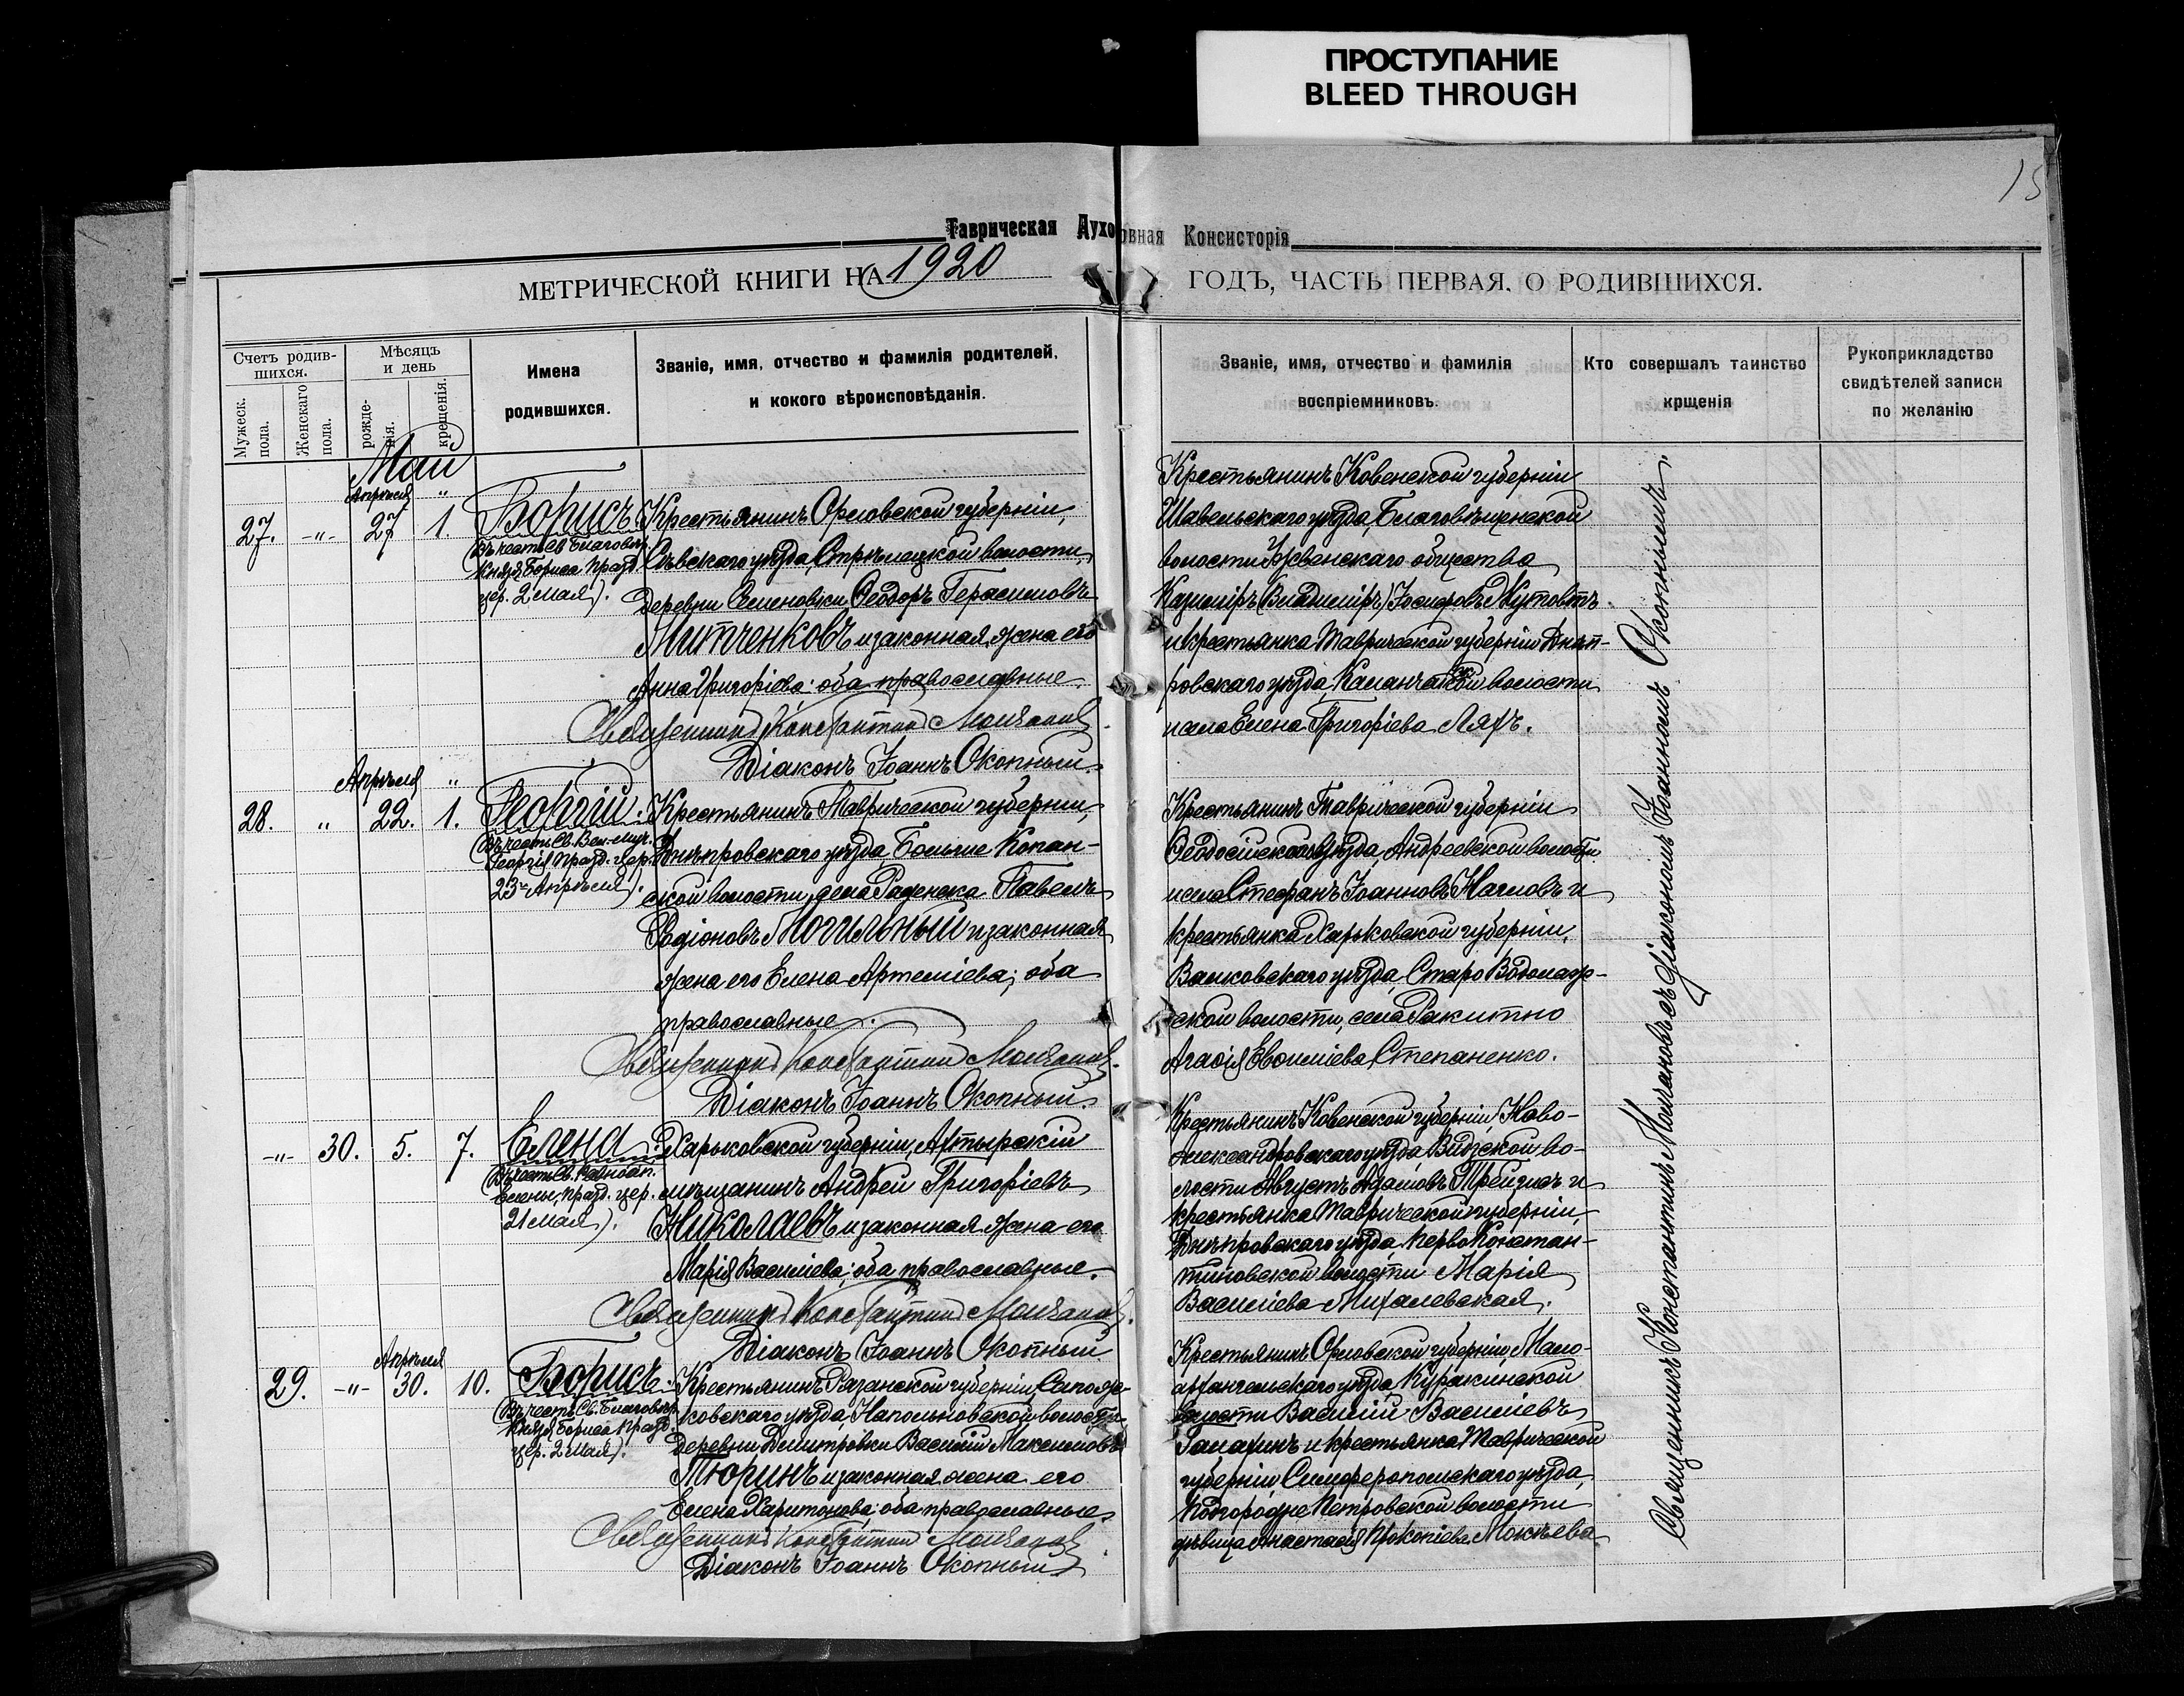 ПРОСТУПАНИЕ
BLEED THROUGH
15
Таврическая Духовная Консисторія
МЕТРИЧЕСКОЙ КНИГИ НА 1920 ГОДЪ, ЧАСТЬ ПЕРВАЯ, О РОДИВШИХСЯ.
Счетъ родив-
шихся.
Мужеск.
пола.
Женскаго
пола.
Мѣсяцъ
и день
рожде-
нія.
крещенія.
Имена
родившихся.
Званіе, имя, отчество и фамилія родителей,
и кокого вѣроисповѣданія.
Званіе, имя, отчество и фамилія
воспріемниковъ.
Кто совершалъ таинство
крщенія
Рукоприкладство
свидѣтелей записи
по желанію
Май
Апрѣля "
27. -"- 27 1.
Борисъ.
(Въ честь Св. Благовѣр.
Князя Бориса празд.
цер. 2 мая).
Крестьянинъ Орловской губерніи,
Сѣвскаго уѣзда, Стрѣлецкой волости,
деревни Семеновки Ѳеодоръ Герасимовъ
Митченковъ и законная жена его
Анна Григоріева; оба православные.
Священникъ Константинъ Молчановъ.
Діаконъ Іоаннъ Окопный.
Крестьянинъ Ковенской губерніи
Шавельскаго уѣзда, Благовѣщенской
волости Ужвенскаго общества
Казиміръ (Владиміръ) Іосифовъ Жутовтъ
и крестьянка Таврической губерніи Днѣп-
ровскаго уѣзда, Каланчакской волости
и села Елена Григоріева Ляхъ.
Апрѣля "
28. " 22. 1.
Георгій.
(Въ честь Св. Вел. Муч.
Георгія празд. цер.
23го Апрѣля).
Крестьянинъ Таврической губерніи,
Днѣпровскаго уѣзда Больше Копан-
ской волости, села Раденска Павелъ
Родіоновъ Могильный и законная
жена его Елена Артеміева; оба
православные.
Священникъ Константинъ Молчановъ.
Діаконъ Іоаннъ Окопный.
Крестьянинъ Таврической губерніи
Ѳеодосійскаго уѣзда, Андреевской волости
и села Стефанъ Іоанновъ Наумовъ и
крестьянка Харьковской губерніи,
Валковскаго уѣзда, Старо Водолаж-
ской волости, села Ракитно
Агафія Евфиміева Степаненко.
-"- 30. 5. 7.
Елена.
(Въ честь Св. Равноап.
Елены, празд. цер.
21 мая).
Харьковской губерніи, Ахтырскій
мѣщанинъ Андрей Григоріевъ
Николаевъ и законная жена его
Марія Василіева; оба православные.
Священникъ Константинъ Молчановъ.
Діаконъ Іоаннъ Окопный.
Крестьянинъ Ковенской губерніи, Ново-
александровскаго уѣзда, Видзской во-
лости Августъ Адамовъ Трейгисъ и
крестьянка Таврической губерніи,
Днѣпровскаго уѣзда, Перво Констан-
тиновской волости Марія
Василіева Михалевская.
Апрѣля
29. -"- 30. 10.
Борисъ.
(Въ честь Св. Благовѣр.
Князя Бориса празд.
цер. 2 мая).
Крестьянинъ Рязанской губерніи, Сапож-
ковскаго уѣзда, Напольновской волости,
деревни Димитровки Василій Максимовъ
Тюринъ и законная жена его
Елена Харитонова; оба православные.
Священникъ Константинъ Молчановъ.
Діаконъ Іоаннъ Окопный.
Крестьянинъ Орловской губерніи, Мало-
архангельскаго уѣзда, Куракинской
волости Василій Василіевъ
и крестьянка Таврической
губерніи, Симферопольскаго уѣзда,
Подгородне Петровской волости
дѣвица Анастасія Прокопіева Мокѣева
Священникъ Константинъ Молчановъ съ діакономъ Іоанномъ Окопнымъ.